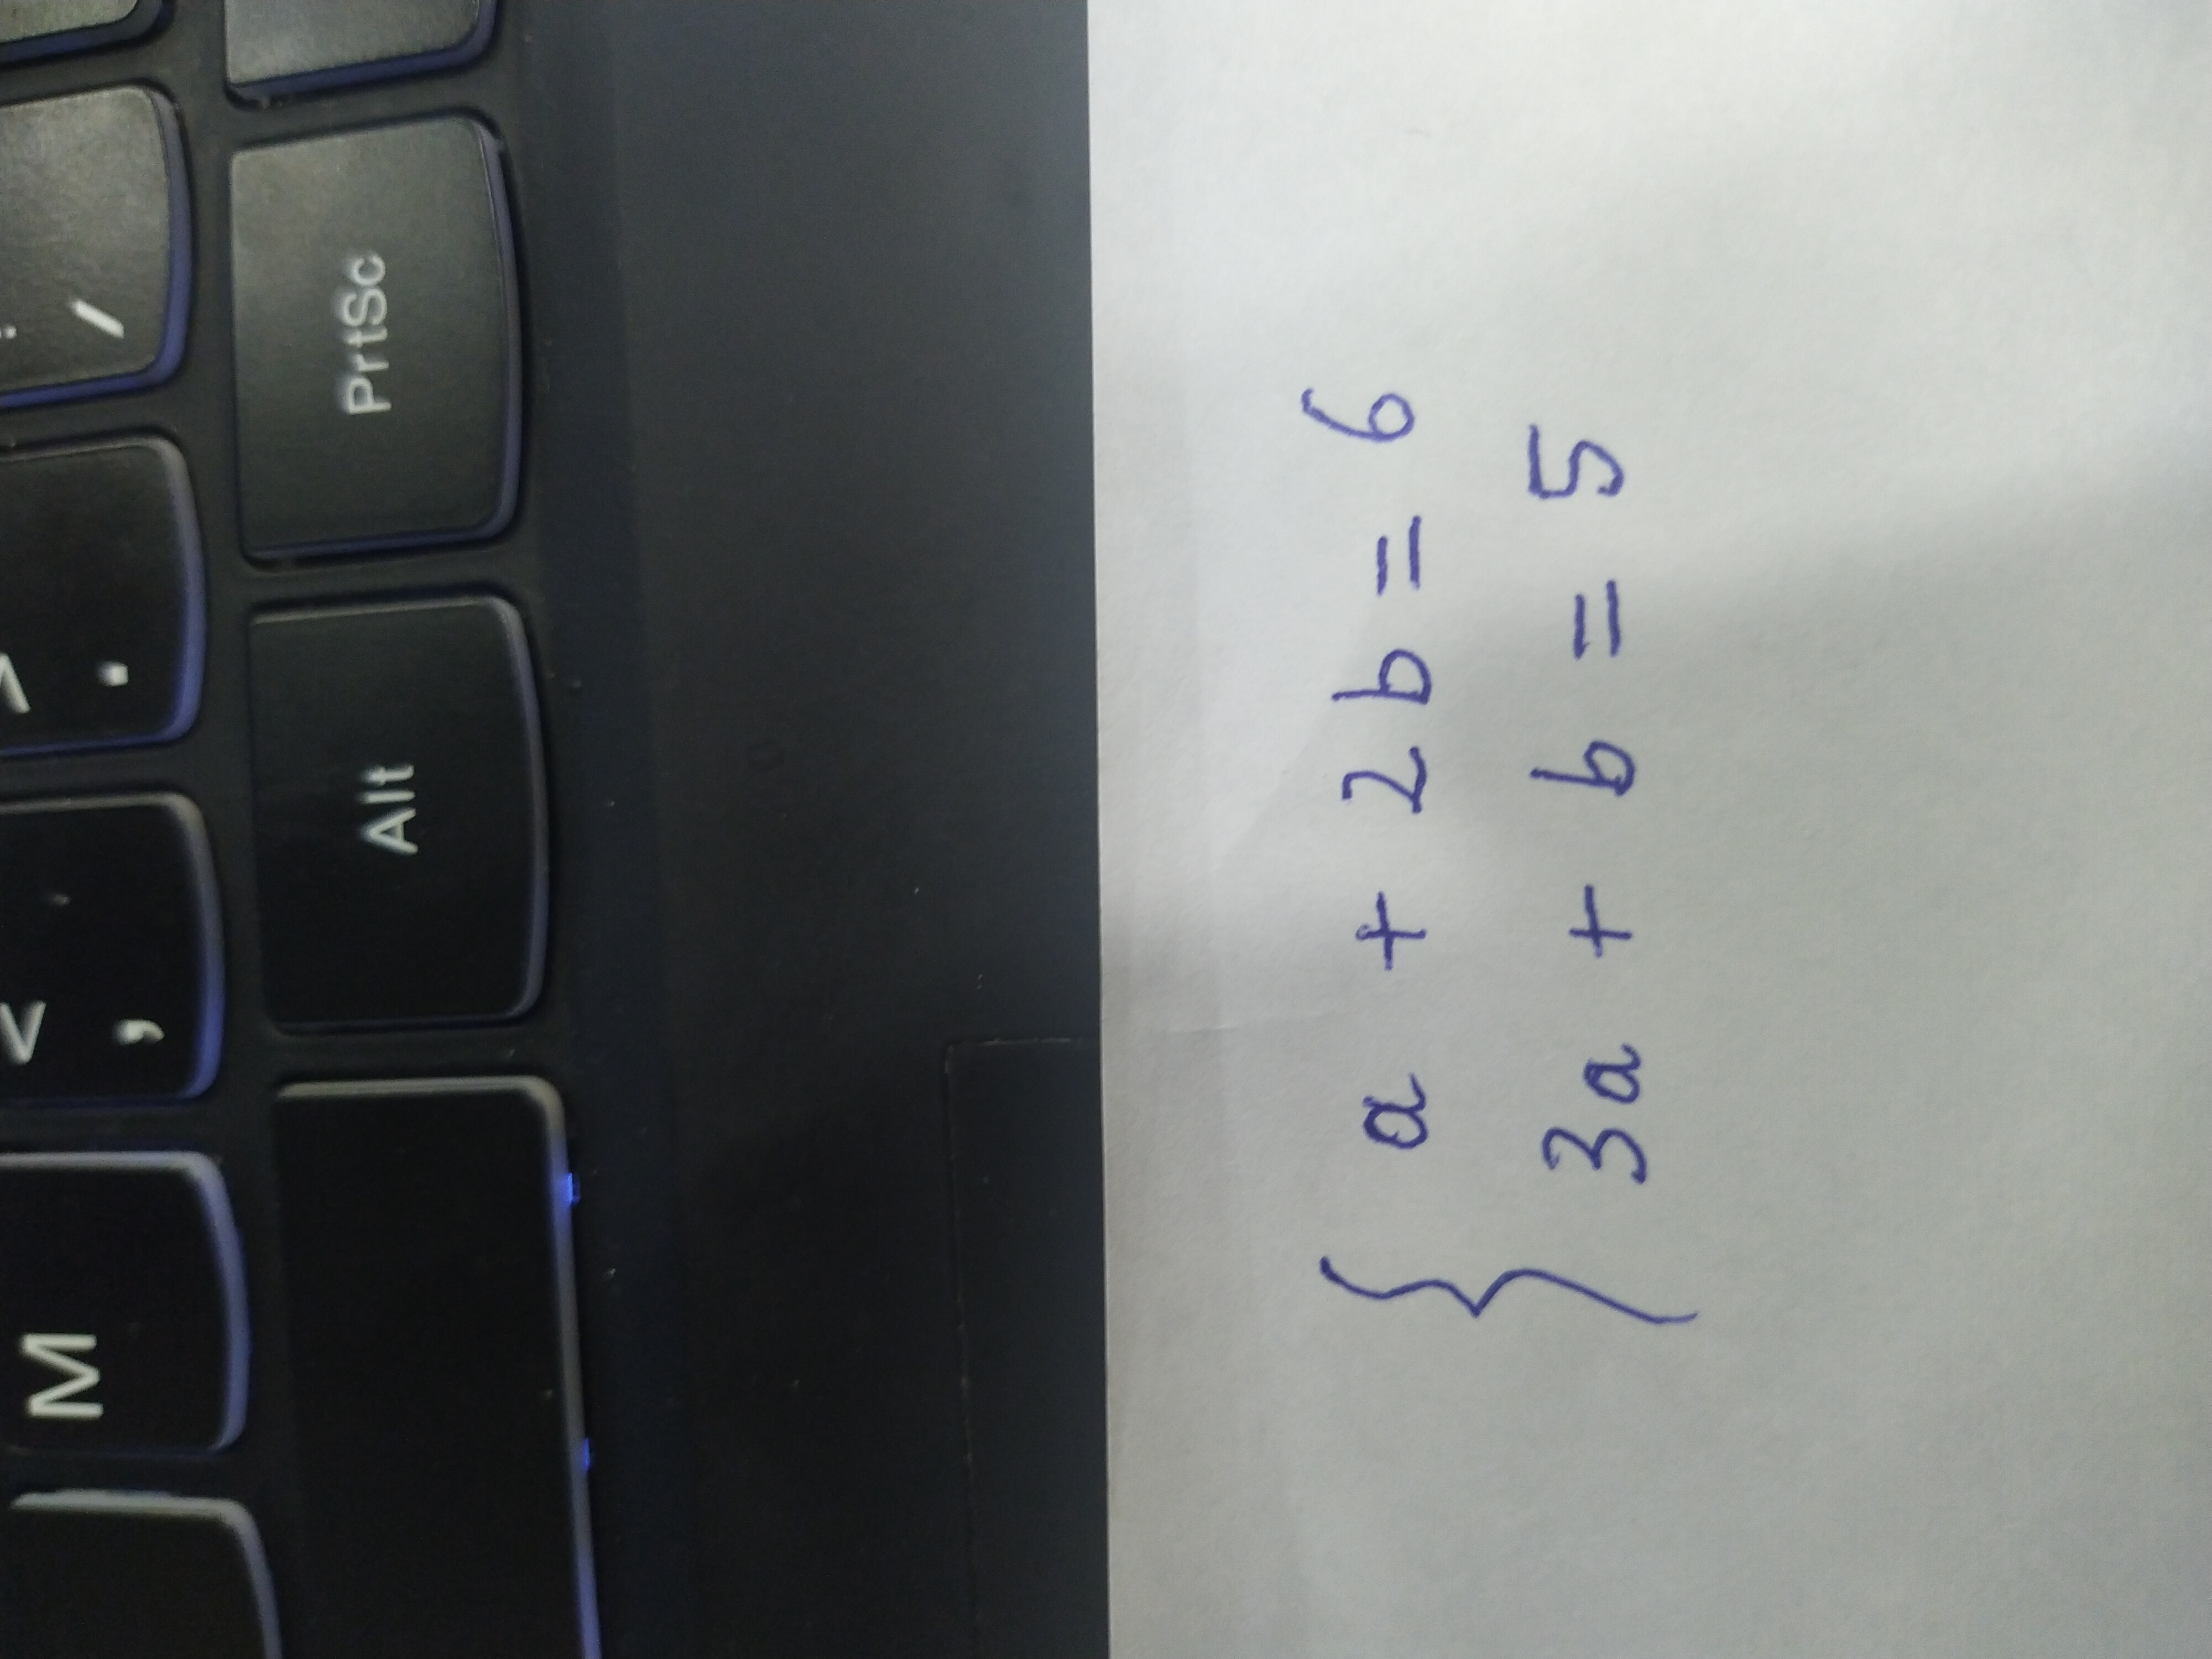 M < , > . /
Alt PrtSc
a + 2b = 6
3a + b = 5